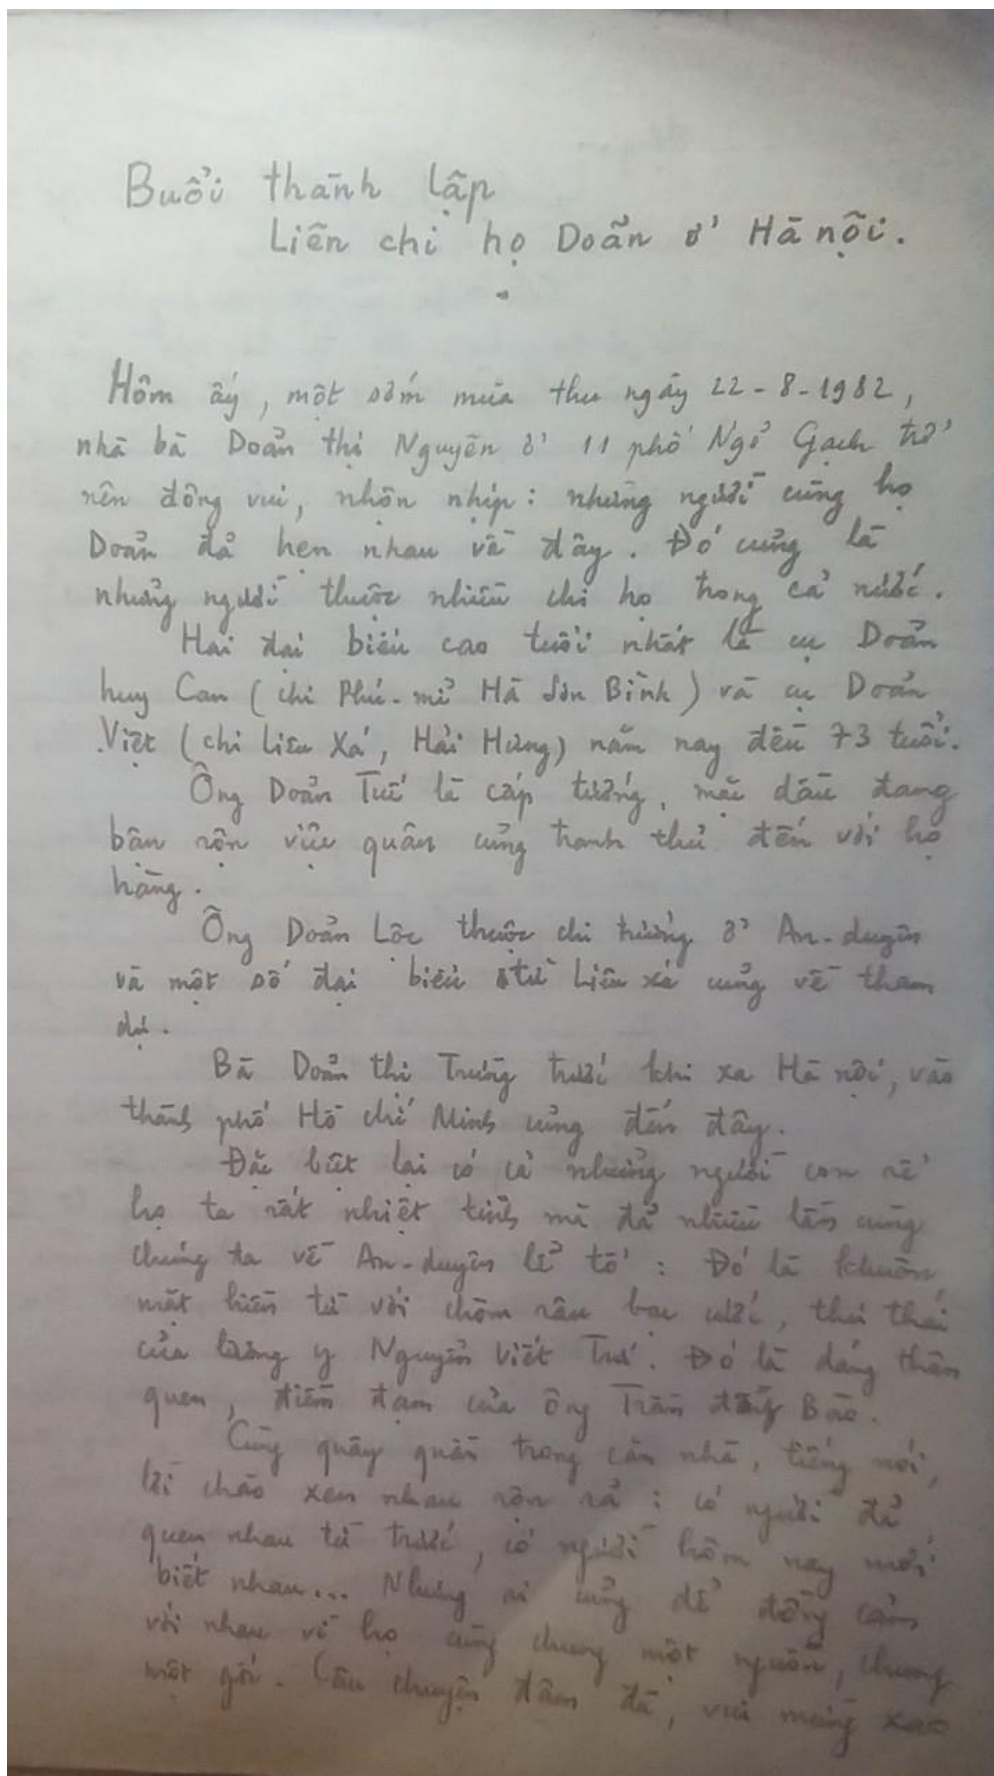 Buổi thành lập
Liên chi họ Doãn ở Hà nội.
Hôm ấy, một sớm mùa thu ngày 22-8-1982,
nhà bà Doãn thị Nguyên ở 11 phố Ngõ Gạch trở
nên đông vui, nhộn nhịp: những người cùng họ
Doãn đã hẹn nhau về đây. Đó cũng là
những người thuộc nhiều chi họ trong cả nước.
Hai đại biểu cao tuổi nhất là cụ Doãn
huy Can (chi Phú-mỹ Hà Sơn Bình) và cụ Doãn
Việt (chi Liêu Xá, Hải Hưng) năm nay đều 73 tuổi.
Ông Doãn Tuế là cấp tướng, mặc dầu đang
bận rộn việc quân cũng tranh thủ đến với họ
hàng.
Ông Doãn Lộc thuộc chi trưởng ở An-duyên
và một số đại biểu từ Liêu xá cũng về tham
dự.
Bà Doãn thị Trưng trước khi xa Hà nội, vào
thành phố Hồ chí Minh cũng đến đây.
Đặc biệt lại có cả những người con rể
họ ta rất nhiệt tình mà đã nhiều lần cùng
chúng ta về An-duyên lễ tổ: Đó là khuôn
mặt hiền từ với chòm râu bạc ước, thư thái
của lương y Nguyễn Viết Trư. Đó là dáng thân
quen, điềm đạm của ông Trần đăng Bảo.
Cùng quây quần trong căn nhà, tiếng nói,
lời chào xen nhau rộn rã: có người đã
quen nhau từ trước, có người hôm nay mới
biết nhau... Nhưng ai cũng dễ đồng cảm
với nhau vì họ cùng chung một nguồn, chung
một gốc. Câu chuyện đậm đà, vui mừng xao